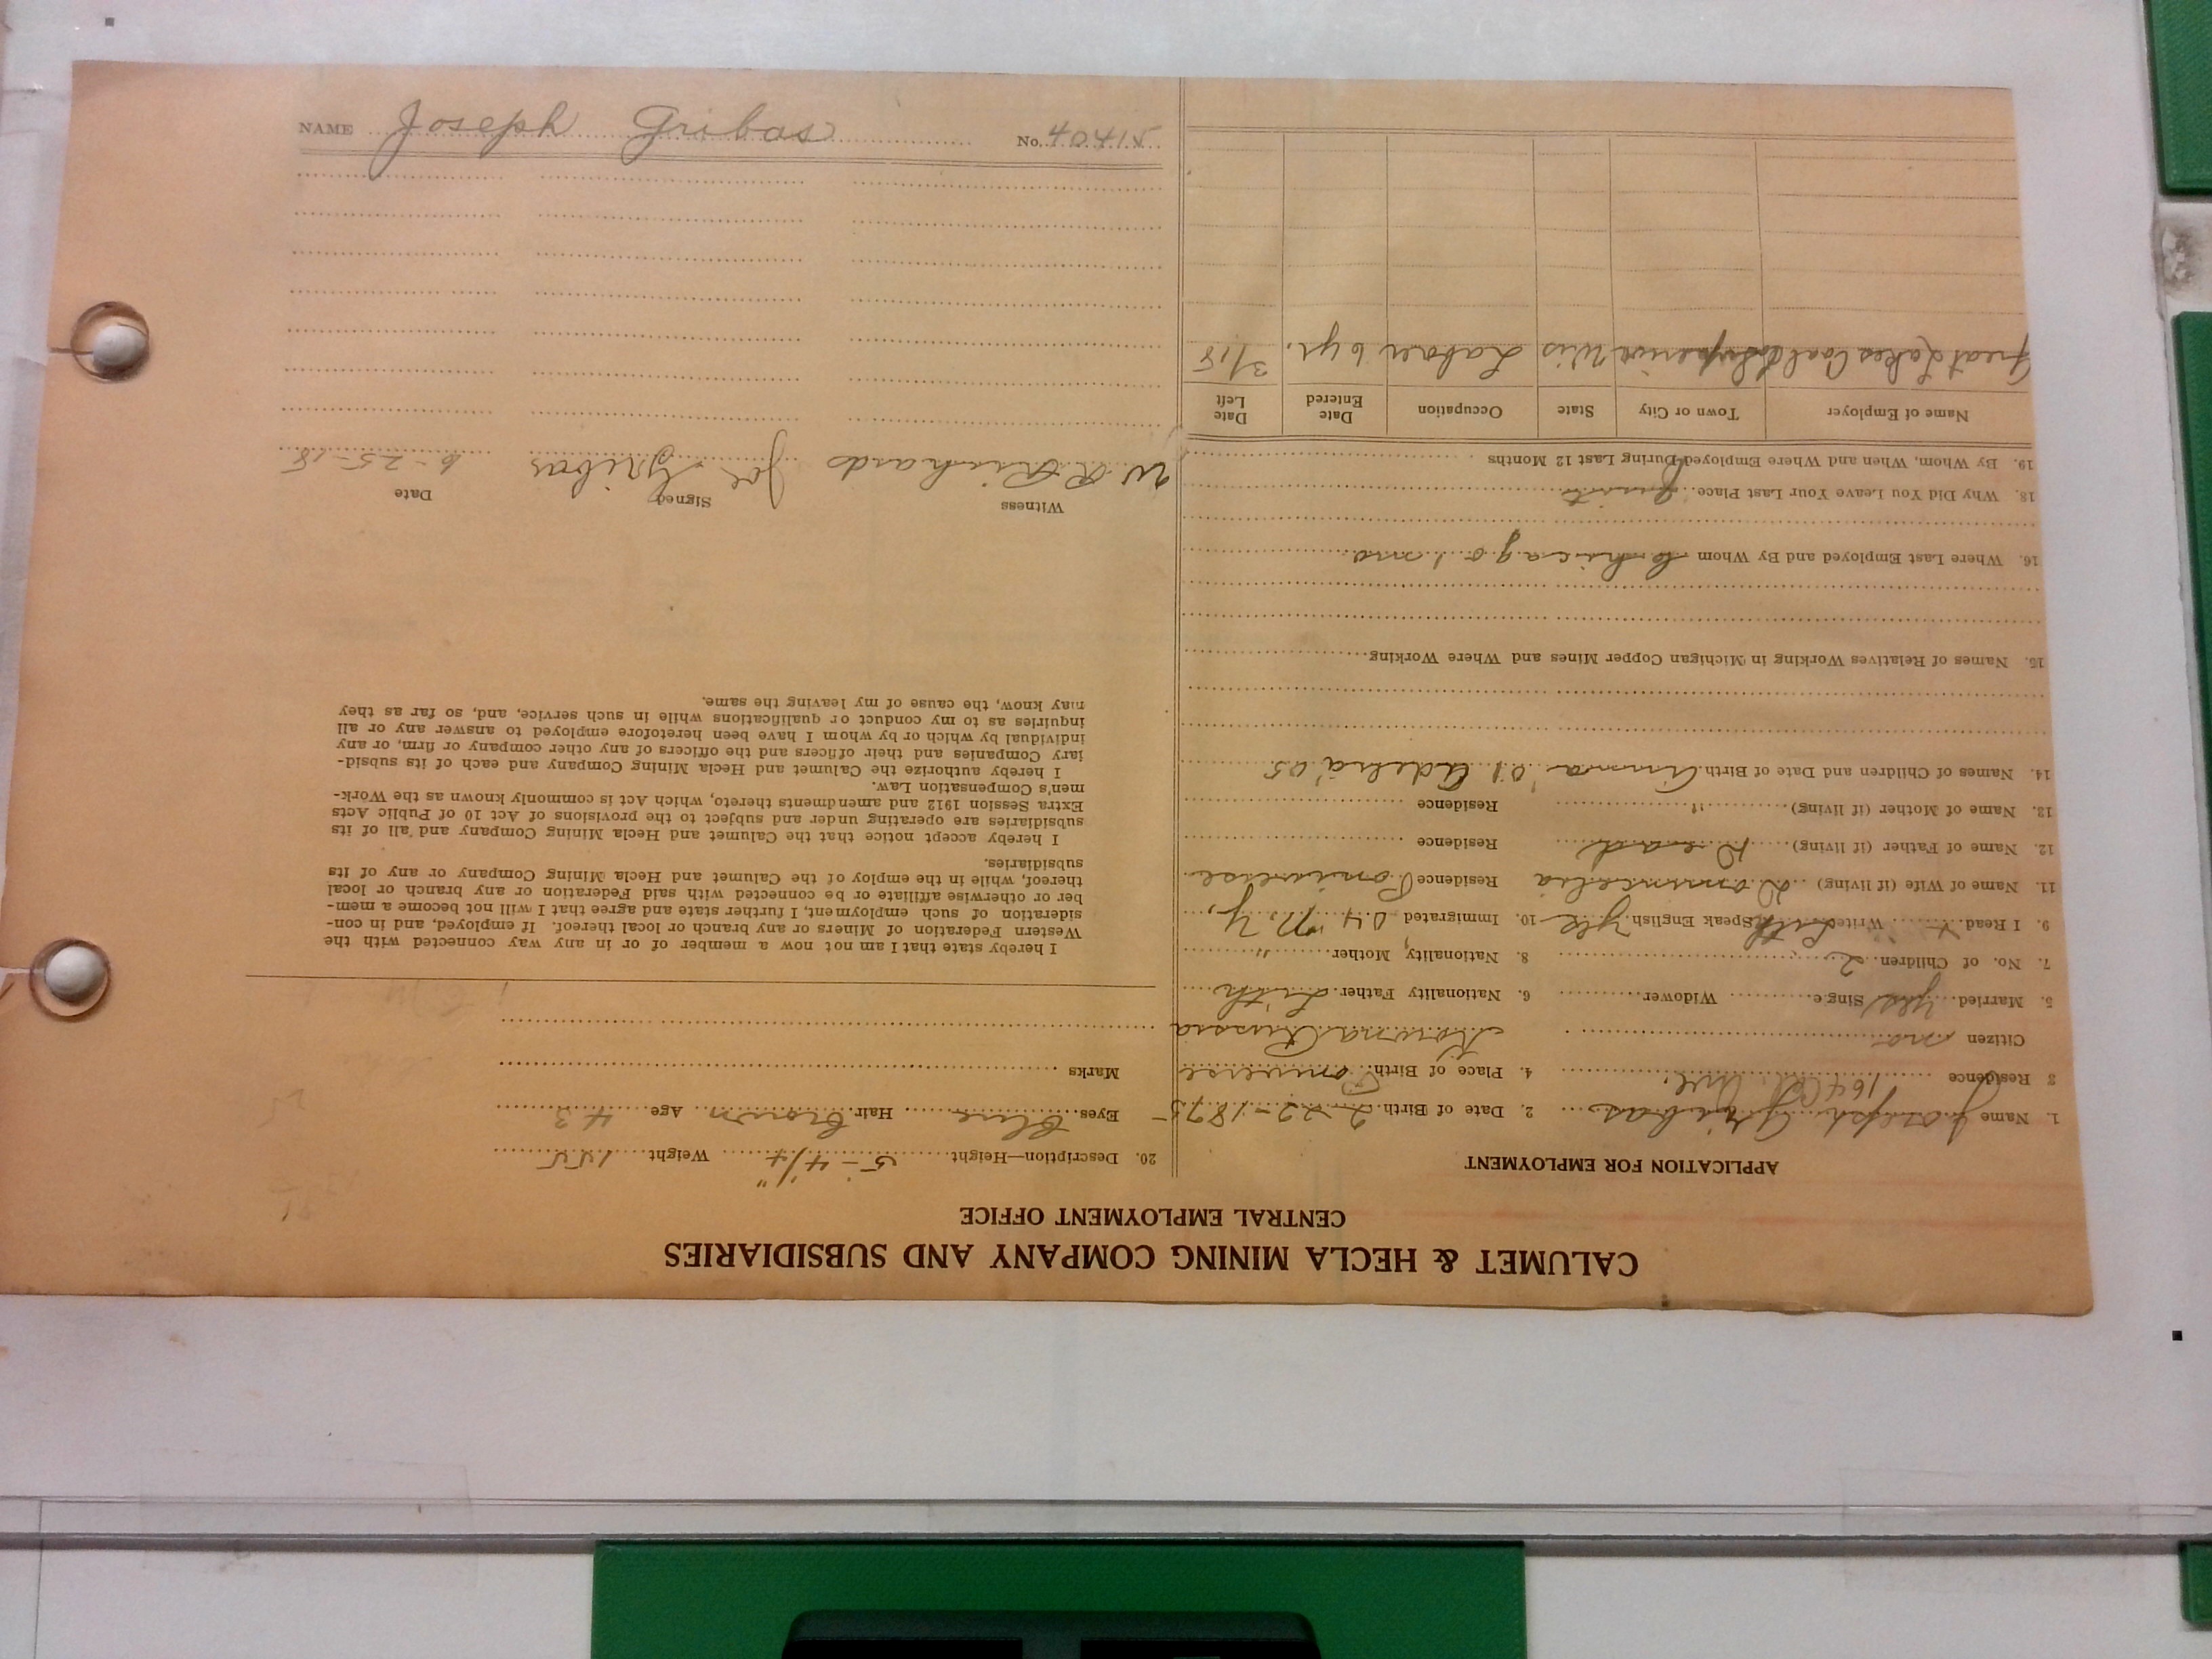 NAME Joseph Gribas No. 40415
CALUMET & HECLA MINING COMPANY AND SUBSIDIARIES
CENTRAL EMPLOYMENT OFFICE
APPLICATION FOR EMPLOYMENT
1. Name Joseph Gribas 2. Date of Birth 2-22-1875
3 Residence 164 Cal. Ave. 4. Place of Birth Poniverse
Citizen no Kowna Russia
5. Married yes Single Widower 6. Nationality Father Lith
7. No. of Children 2 8. Nationality Mother "
9. I Read + Write Lith Speak English yes 10. Immigrated 04 N.Y.
11. Name of Wife (if living) Domicelia Residence Poniverse
12. Name of Father (if living) Dead Residence
13. Name of Mother (if living) " Residence
14. Names of Children and Date of Birth Anna '01 Adelia '05
15. Names of Relatives Working in Michigan Copper Mines and Where Working
16. Where Last Employed and By Whom Chicago 1 mo
18. Why Did You Leave Your Last Place Quit
19. By Whom, When and Where Employed During Last 12 Months
Name of Employer Town or City State Occupation Date Entered Date Left
Great Lakes Coal Superior Wis Labor 6 yr. 3/18
20. Description—Height 5-4 1/4" Weight 155
Eyes Blue Hair Brown Age 43
Marks
I hereby state that I am not now a member of or in any way connected with the
Western Federation of Miners or any branch or local thereof. If employed, and in con-
sideration of such employment, I further state and agree that I will not become a mem-
ber or otherwise affiliate or be connected with said Federation or any branch or local
thereof, while in the employ of the Calumet and Hecla Mining Company or any of its
subsidiaries.
I hereby accept notice that the Calumet and Hecla Mining Company and all of its
subsidiaries are operating under and subject to the provisions of Act 10 of Public Acts
Extra Session 1912 and amendments thereto, which Act is commonly known as the Work-
men's Compensation Law.
I hereby authorize the Calumet and Hecla Mining Company and each of its subsid-
iary Companies and their officers and the officers of any other company or firm, or any
individual by which or by whom I have been heretofore employed to answer any or all
inquiries as to my conduct or qualifications while in such service, and, so far as they
may know, the cause of my leaving the same.
Witness Signed Date
W. A. Richards Joe Gribas 6-25-18